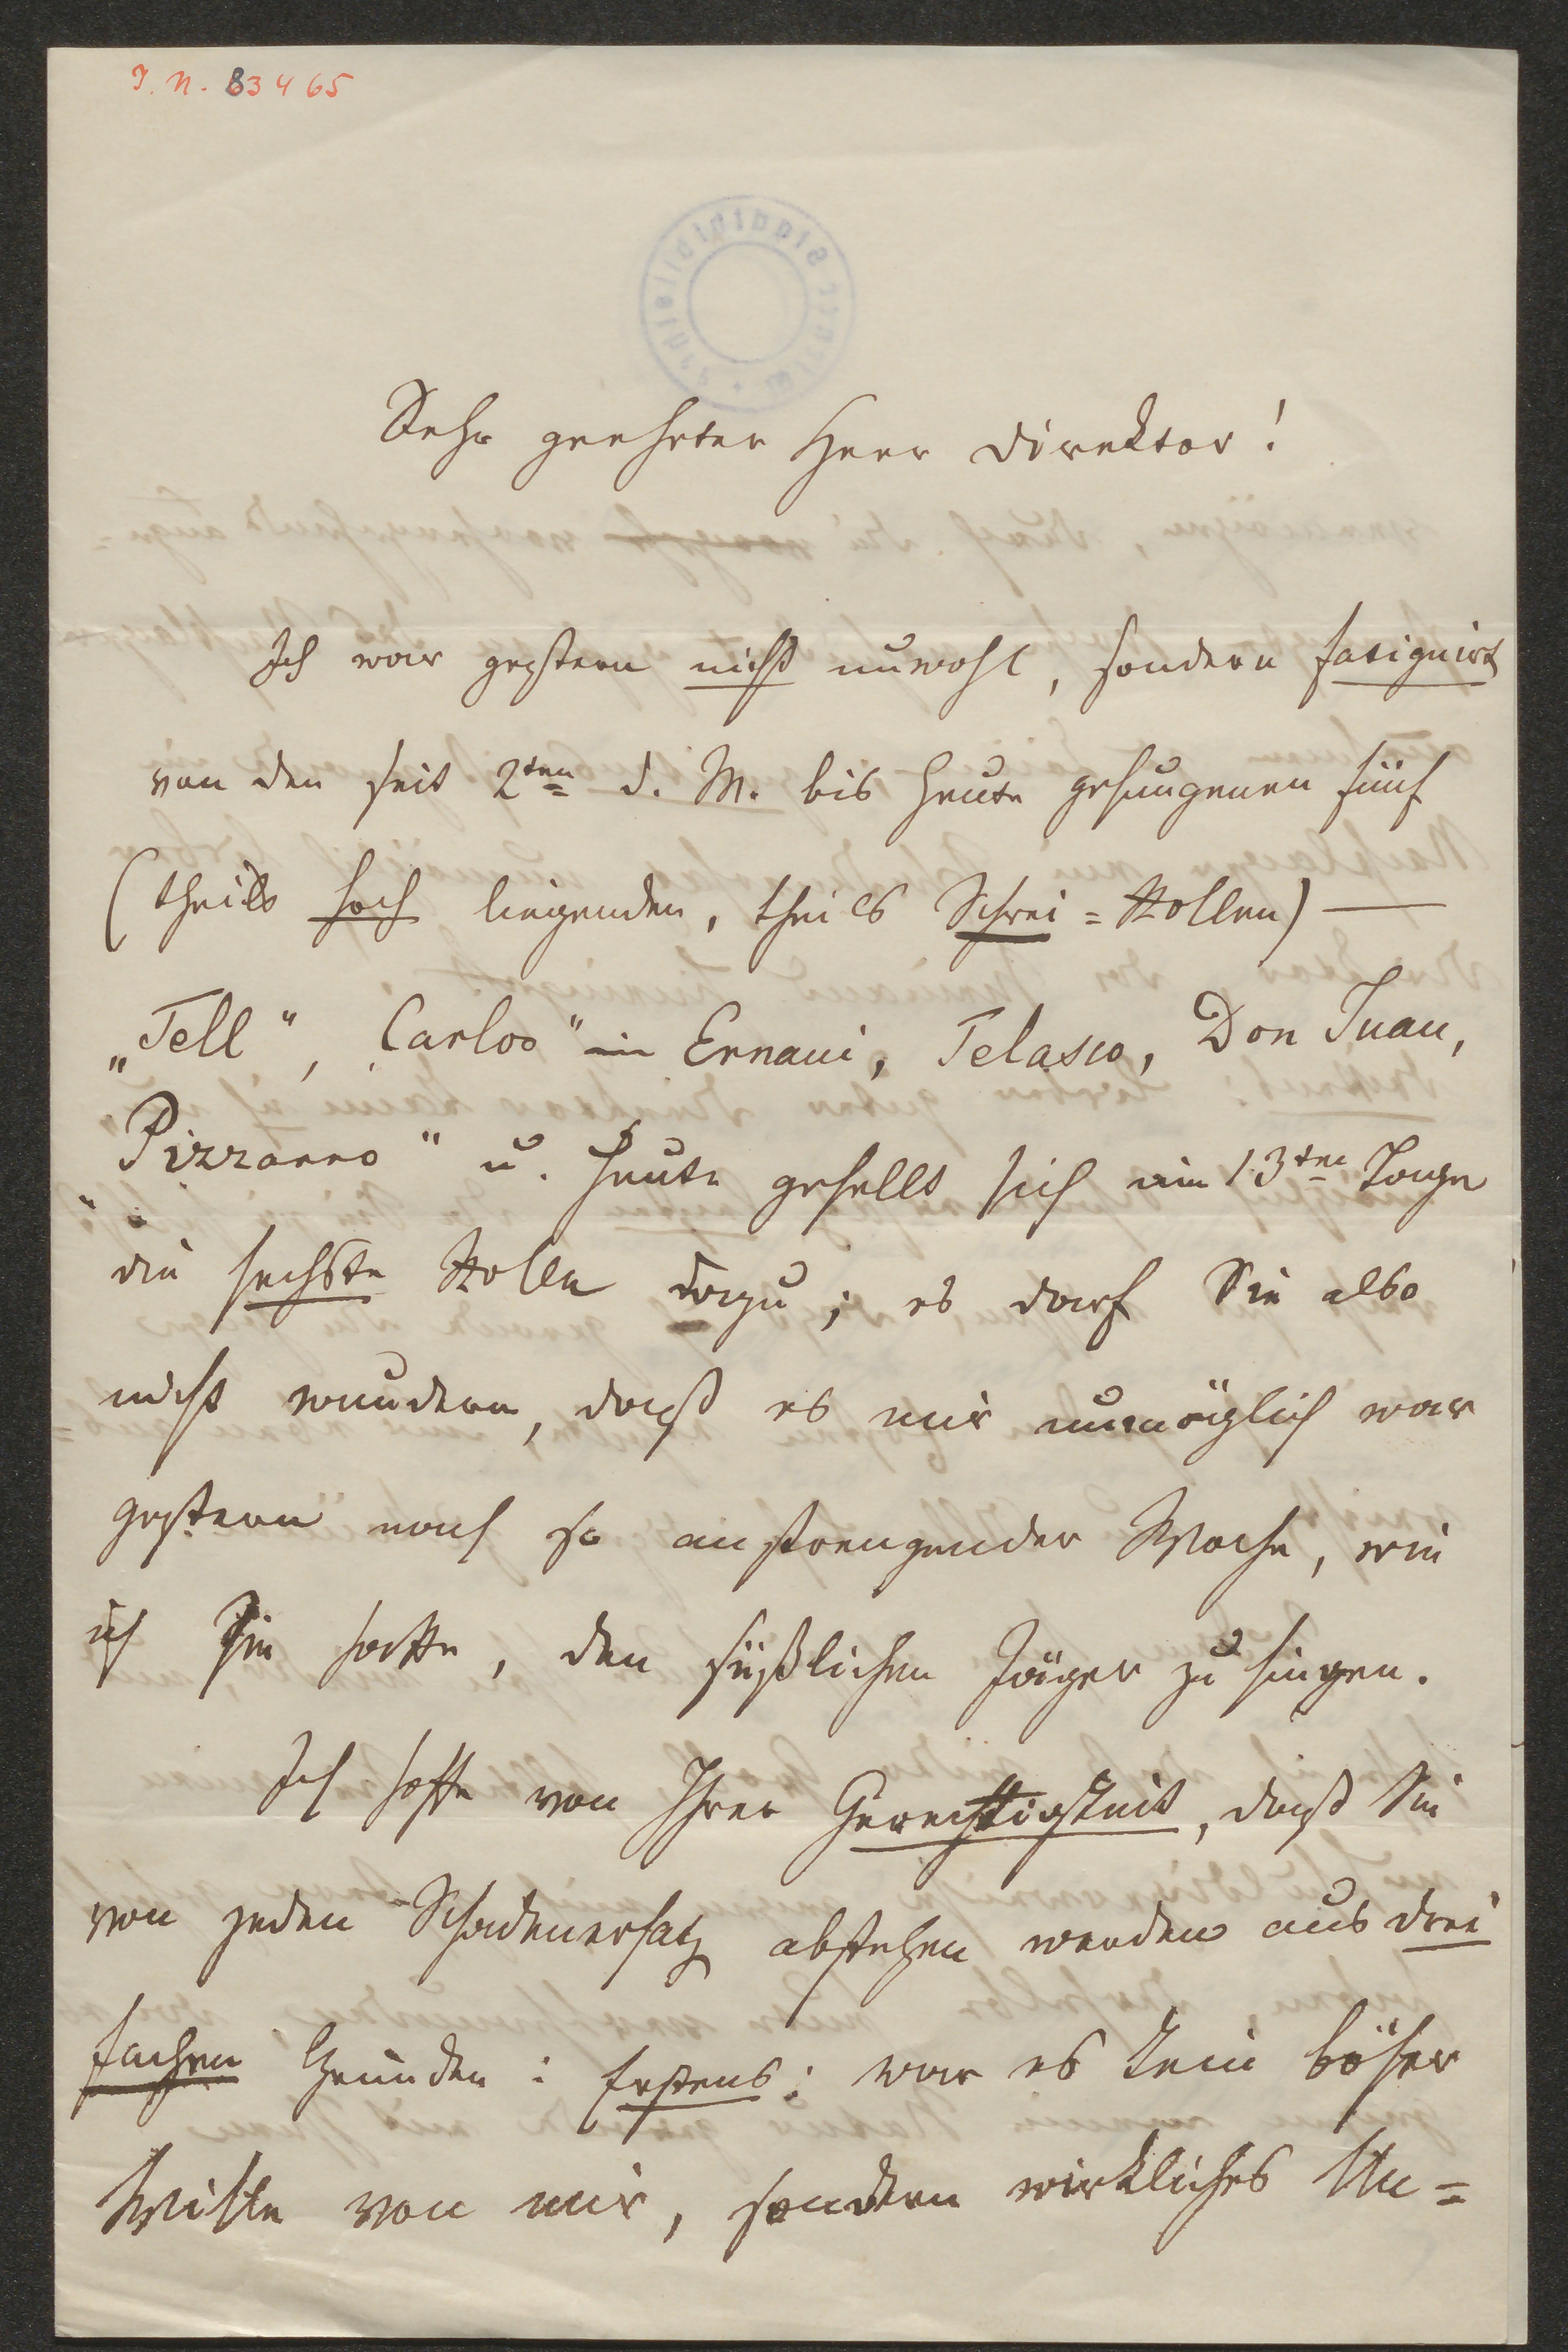 I. N. 83465
Sehr geehrter Herr Direktor!
Ich war gestern nicht unwohl, sondern fatiguirt
von den seit 2ten d. M. bis heute gesungenen fünf
(theils hoch liegenden, theils Schrei=Rollen) —
„Tell", „Carlos" in Ernani, Telasco, Don Juan,
„Pizzarro" u. heute gesellt sich am 13ten Tage
die sechste Rolle dazu; es darf Sie also
nicht wundern, daß es mir unmöglich war
gestern nach so anstrengender Woche, wie
ich sie hatte, den süßlichen Jäger zu singen.
Ich hoffe von Ihrer Gerechtigkeit, daß Sie
von jeden Schadenersatz abstehen werden aus drei
fachen Gründen: Erstens: war es kein böser
Wille von mir, sondern wirkliches Un=